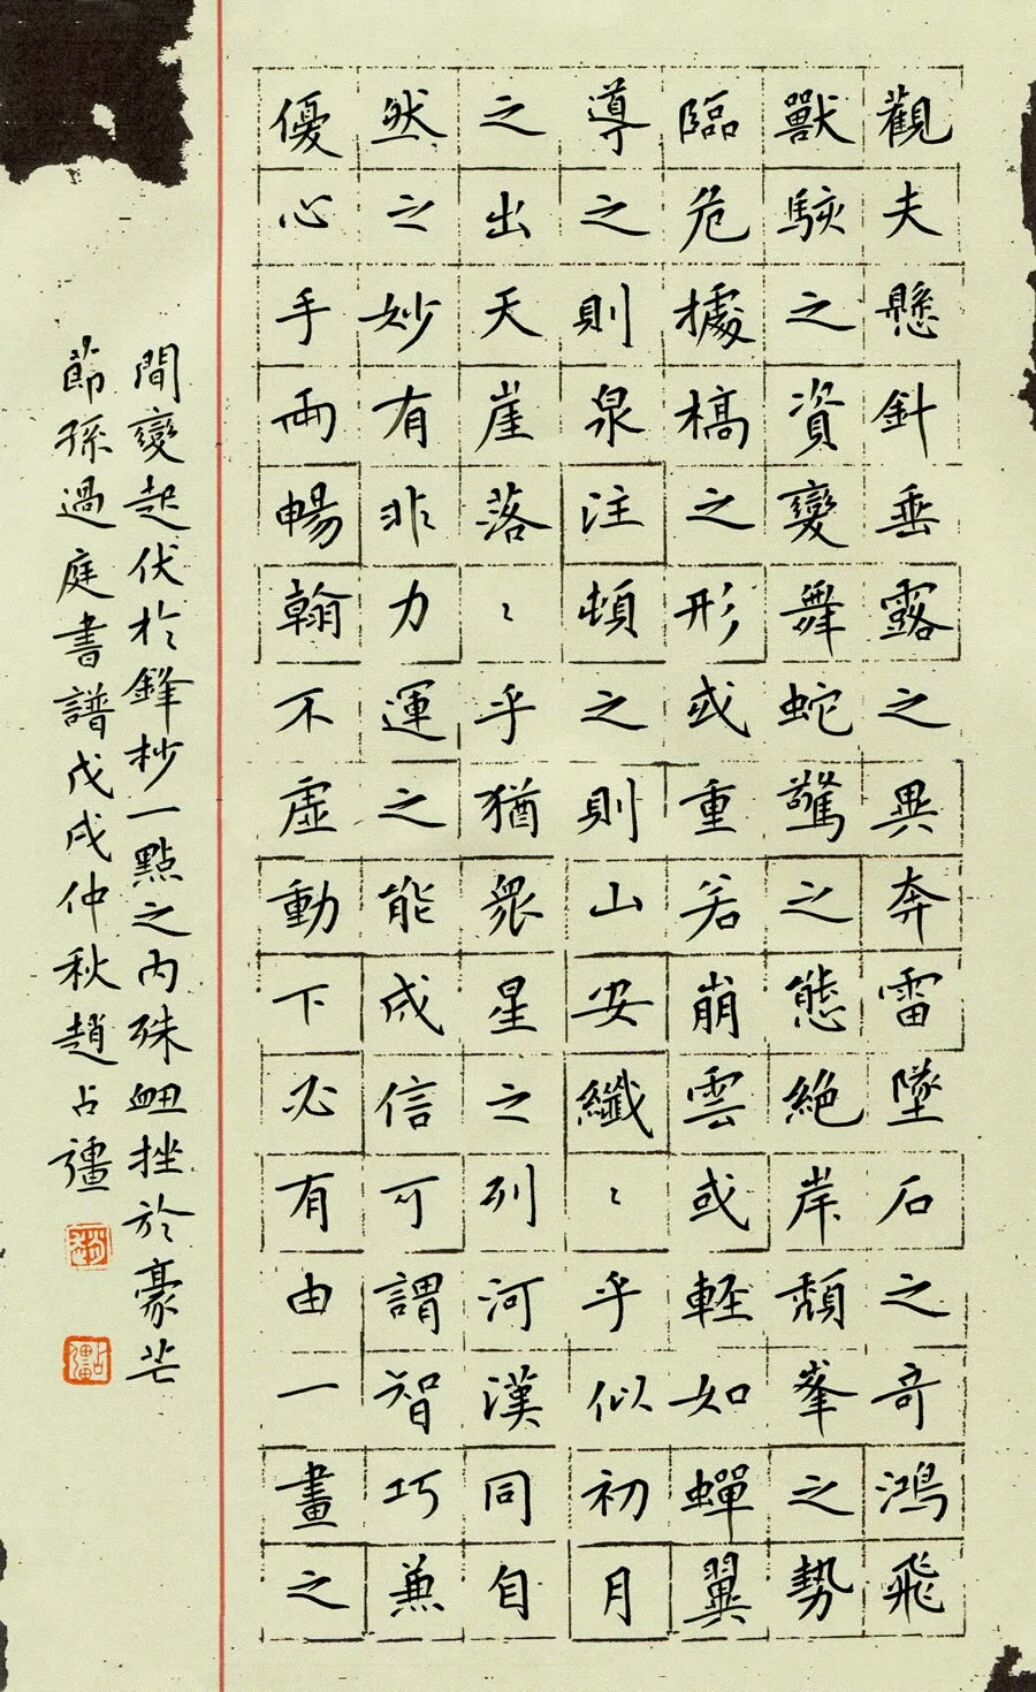 觀夫懸針垂露之異奔雷墜石之奇鴻飛
獸駭之資變舞蛇驚之態絶岸頹峯之勢
臨危據槁之形或重若崩雲或輕如蟬翼
導之則泉注頓之則山安纖〻乎似初月
之出天崖落〻乎猶衆星之列河漢同自
然之妙有非力運之能成信可謂智巧兼
優心手両暢翰不虛動下必有由一畫之
間變起伏於鋒杪一點之内殊衄挫於豪芒
節孫過庭書譜戊戌仲秋趙占疆